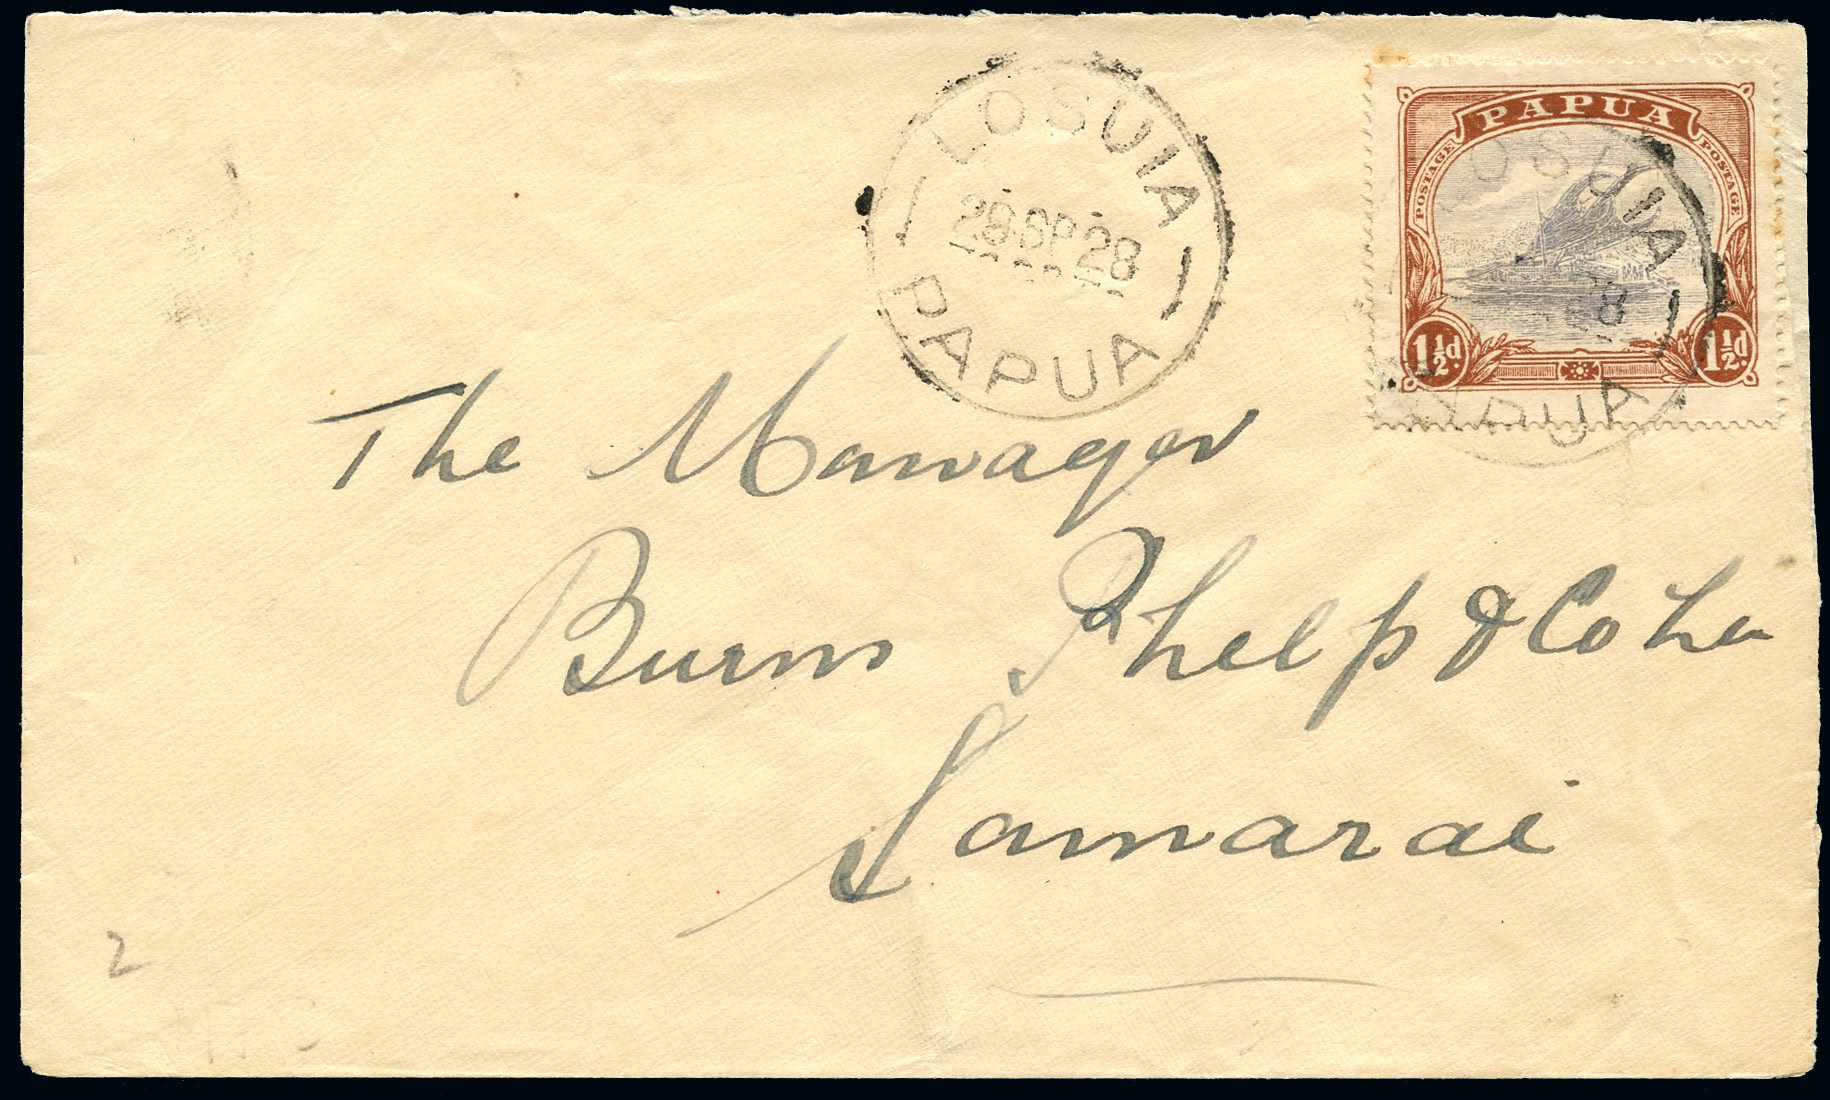 LOSUIA
28 SP 28
PAPUA
PAPUA
POSTAGE POSTAGE
1½d. 1½d.
OSUIA
28
PAPUA
The Manager
Burns Phelp & Co Ltd
Samarai
2